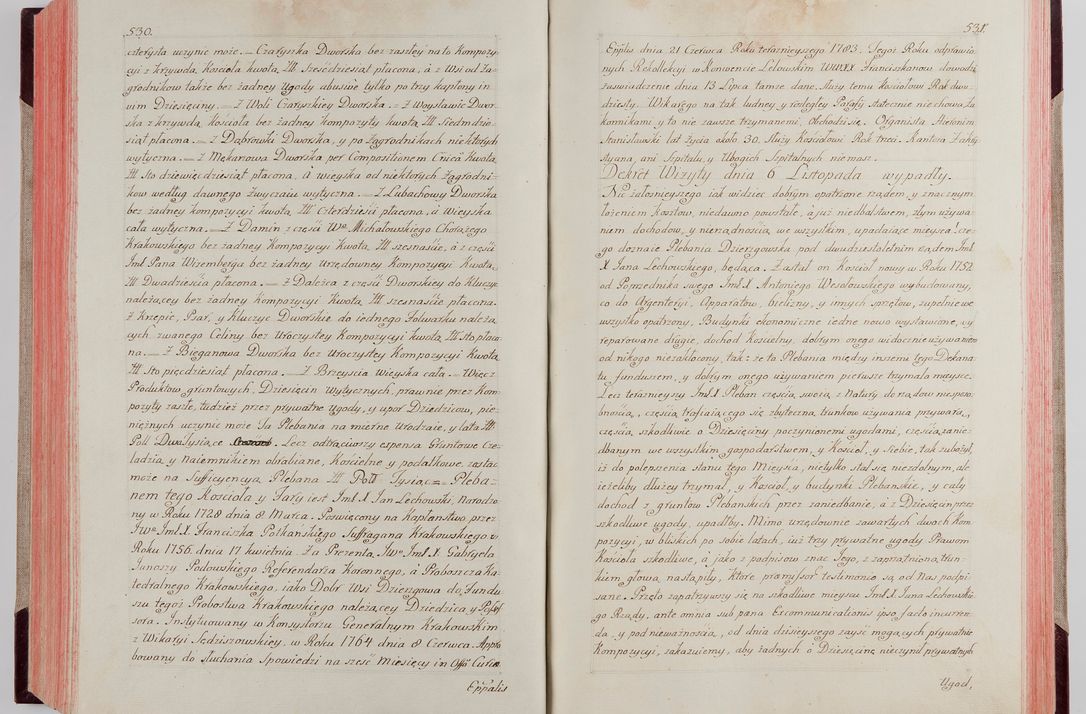 530.
czterysta uczynić może. — Czaryszka Dworska bez zasłey na to Kompozy-
cyi z krzywdą Kościoła kwotą Zlł sześćdziesiąt płacona, à z Wsi od Za-
grodnikow także bez żadney Ugody abusive tylko po trzy kapłony in
vim Dziesięciny. — Z Woli Czaryszkiey Dworska. — Z Woysławic Dwor-
ska z krzywdą Kościoła bez żadney Kompozyty kwotą Zlł Siedmdzie-
siąt płacona. — Z Dąbrowki Dworska, y po Zagrodnikach niektorych
wytyczna. — Z Mękarowa Dworska per Compositionem Cnicà Kwotą
Zlł Sto dziewięćdziesiąt płacona, à wieyska od niektorych Zagrodni-
kow według dawnego Zwyczaiu wytyczna. — Z Lubachowy Dworska
bez żadney kompozycyi kwotą Zlł Czterdzieści płacona, à Wieyska
cała wytyczna. — Z Damin z części Wo Michałowskiego Chorążego
Krakowskiego bez żadney Kompozycyi Kwotą Zlł szesnaście, à z części
Jml Pana Wizemberga bez żadney Urzędowney Kompozycyi Kwotą
Zlł Dwadzieścia płacona. — Z Dalężca z części Dworskiey do Kluczyc
należącey bez żadney kompozycyi kwotą Zlł szesnaście płacona.
Z Krzepic, Psar, y Kluczyc Dworskie do iednego Folwarku należą
cych zwanego Celiny bez Uroczystey Kompozycyi kwotą Zlł Sto płaco-
na. — Z Bieganowa Dworska bez Uroczystey Kompozycyi Kwotą
Zlł Sto pięćdziesiąt płacona. — Z Brzeyscia Wieyska cała. — Więc
Produktow gruntowych, Dziesięcin Wytycznych, prawnie przez Kom-
pozyty zaszłe, tudzież przez prywatne Ugody, y upor Dziedzicow, pie-
niężnych uczynić może Ta Plebania na mierne Urodzaie, y lata Zlł
Poll Dwa Tysiące. Lecz odtrąciwszy expensa Gruntowe Cze-
ladzią y Naiemnikiem obrabiane, Kościelne y podatkowe, zostać
może na Sufficyencyą Plebana Zlł Polł Tysiąc — Pleba-
nem tego Kościoła y Fary iest Jml. X Jan Lechowski, Narodzo-
ny w Roku 1728 dnia 8 Marca. Poswięcony na Kapłanstwo przez
JWo Jml. X. Franciszka Potkańskiego Suffragana Krakowskiego w
Roku 1756. dnia 17 kwietnia. Za Prezentą JWo Jml. X. Gabryela
Junoszy Podowskiego Referendarza Koronnego, à Proboszcza Ka-
tedralnego Krakowskiego, iako Dobr Wsi Dzierzgowa do Fundu
szu tegoż Probostwa Krakowskiego należącey Dziedzica y Posses-
sora. Instytuowany w Konsystorzu Generalnym Krakowskim
z Wikaryi Sędziszowskiey, w Roku 1764 dnia 8 Czerwca. Appro
bowany do Słuchania Spowiedzi na sześć Miesięcy in Offō Curiae
Eppalis
531.
Epplis dnia 21 Czerwca Roku teraznieyszego 1783. Tegoż Roku odprawio
nych Rekollekcyi w Konwencie Lelowskim WWXX Franciszkanow dowodzi
zaswiadczenie dnia 13 Lipca tamże dane. Służy temu Kościołowi Rok dwu-
dziesty. Wikarego na tak ludney, y rozległey Parafii statecznie niechowa, ta
komikami, y to nie zawsze trzymanemi, obchodzi się. Organista Hieronim
Stanisławski lat życia około 30. służy Kościołowi Rok trzeci. Kantora Zakry
styana, ani Szpitalu, y Ubogich Szpitalnych niemasz.
Dekret Wizyty dnia 6 Listopada wypadły.
Nic żałosnieyszego iak widzieć dobrym opatrzone rządem, y znacznym
łożeniem Kosztow, niedawno powstałe, à już niedbalstwem, złym używa-
niem dochodow, y nierządnością we wszystkim, upadaiące mieysca! cze-
go doznaie Plebania Dzierzgowska pod dwudziestoletnim rządem Jml.
X Jana Lechowskiego, będąca. Zastał on Kościoł nowy w Roku 1752
od Poprzednika swego Jml. X Antoniego Wesołowskiego wybudowany,
co do Argenteryi, Apparatow, bielizny, y innych sprzętow, zupełnie we
wszystko opatrzony, Budynki ekonomiczne iedne nowo wystawione, y
reparowane drugie, dochod Kościelny, dobrym onego widocznie używaniem
od nikogo niezakłocony, tak: że ta Plebania między inszemi tego Dekana-
tu funduszem, y dobrym onego używaniem pierwsze trzymała mieysce.
Lecz teraznieyszy Jml. X. Pleban częścią swoią z Natury do rządow niesposo-
bnością, częścią trafiaiącego się zbytecznie trunkow używania przywarą,
częścią szkodliwie o Dziesięciny poczynionemi ugodami, częścią zanie-
dbanym we wszystkim gospodarstwem, y Kościoł, y siebie, tak zubożył,
iż do polepszenia stanu tego Mieysca, nietylko stał się niezdolnym, ale
ieżeliby dłużey trzymał, y Kościoł y budynki Plebanskie, y cały
dochod z gruntow Plebanskich przez zaniedbanie, à z Dziesięcin przez
szkodliwe ugody, upadłby. Mimo urzędownie zawartych dwoch Kom-
pozycyi, w bliskich po sobie latach, iuż trzy prywatne ugody Prawom
Kościoła szkodliwe, à jako z podpisow znać Jego, z zaprzątnioną trun-
kiem głową nastąpiły, ktore praemissor testimonio są od Nas podpi
sane. Przeto zapatrzywszy na szkodliwe mieyscu Jml. X Jana Lechowskie-
go Rządy, ante omnia sub pana Excommunicationis ipso facto incurren-
da, y pod nieważnością, od dnia dzisieyszego zayść mogących prywatnie
Kompozycyi, zakazuiemy, aby żadnych o Dziesięcinę nieczynił prywatnych
Ugod,